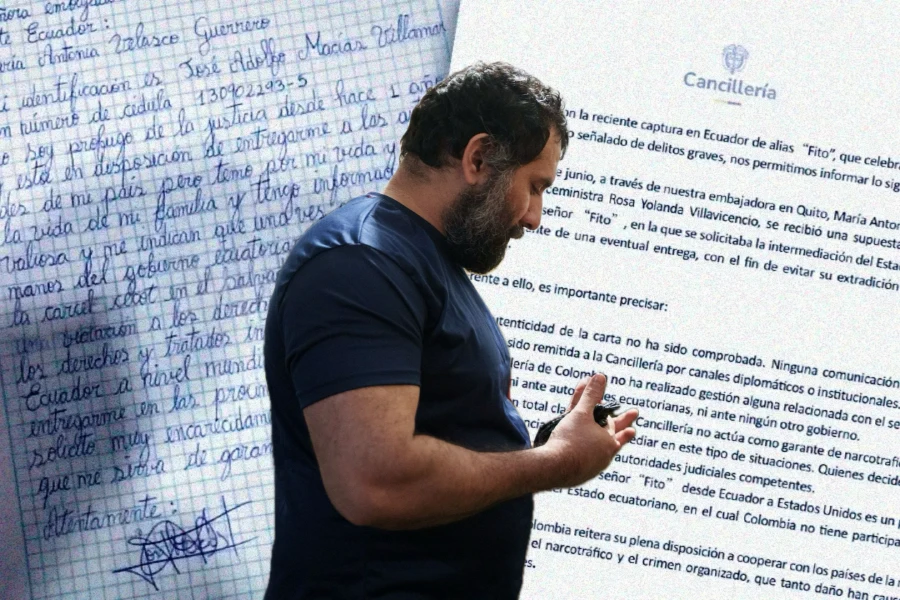 te Ecuador:
María Antonia Velasco Guerrero
identificación es José Adolfo Macías Villamar
número de cédula: 130902293-5
soy prófugo de la justicia desde hace 1 año
estoy en disposición de entregarme a las
des de mi país pero temo por mi vida y
la vida de mi familia y tengo informac
valiosa y me indican que una vez
manos del gobierno ecuatoria
la carcel cecot en el Salva
una violación a los derech
los derechos y tratados in
Ecuador a nivel mundi
entregarme en las próxim
solicito muy encarecidam
que me sirva de garan
Atentamente:
Cancillería
on la reciente captura en Ecuador de alias "Fito", que celebra
o señalado de delitos graves, nos permitimos informar lo sig
e junio, a través de nuestra embajadora en Quito, María Anton
ceministra Rosa Yolanda Villavicencio, se recibió una supuesta
señor "Fito", en la que se solicitaba la intermediación del Esta
nte de una eventual entrega, con el fin de evitar su extradición
rente a ello, es importante precisar:
tenticidad de la carta no ha sido comprobada. Ninguna comunicación
sido remitida a la Cancillería por canales diplomáticos o institucionales.
lería de Colombia no ha realizado gestión alguna relacionada con el se
ni ante auto es ecuatorianas, ni ante ningún otro gobierno.
n total cla Cancillería no actúa como garante de narcotrafic
ediar en este tipo de situaciones. Quienes decide
autoridades judiciales competentes.
señor "Fito" desde Ecuador a Estados Unidos es un p
el Estado ecuatoriano, en el cual Colombia no tiene participa
olombia reitera su plena disposición a cooperar con los países de la
el narcotráfico y el crimen organizado, que tanto daño han caus
es.